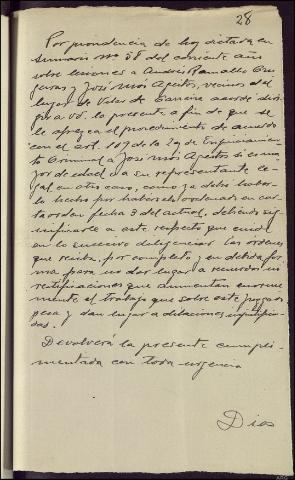 28
Por providencia de hoy dictada en
sumario nº 58 del corriente año
sobre lesiones a Andrés Ramallo
y José Miós Ageitos, vecinos del
lugar de de acordé diri-
gir a Vd. la presente a fin de que se
le ofrezca el procedimiento de acuerdo
con el art. 109 de la Ley de Enjuiciamien-
to Criminal a José Miós Ageitos si es ma-
yor de edad o a su representante le-
gal en otro caso, como ya debió haber-
lo hecho por habérsele ordenado en car-
ta orden fecha 3 del actual, debiendo sig-
nificarle a este respecto que cuide
en lo sucesivo diligenciar las órdenes
que reciba, por completo y en debida for-
ma para no dar lugar a recuerdos ni
ratificaciones que aumentan enorme-
mente el trabajo que sobre este juzgado
pesa y dan lugar a dilaciones injustifica-
das.
Devolverá la presente cumpli-
mentada con toda urgencia
Dios